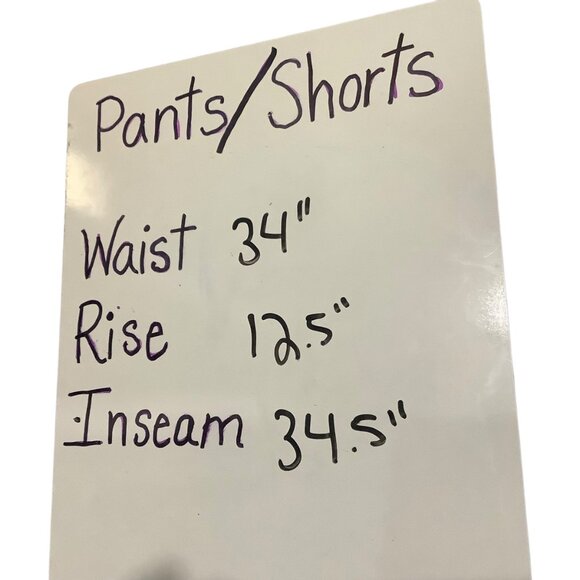 Pants/Shorts
Waist 34"
Rise 12.5"
Inseam 34.5"